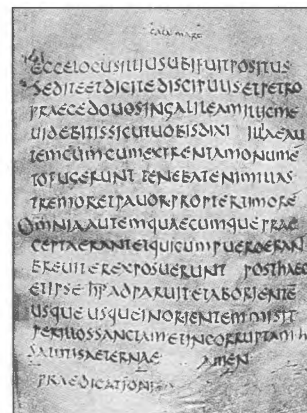 ECCELOCUSILLIUSUBIFUITPOSITUS
SEDITEETDICITEDISCIPULISETPETRO
PRAECEDOUOSINGALILEAMILLICME
UIDEBITISSICUTUOBISDIXI ILLAEAU
TEMCUMCUMEXIRENTAMONUME
TOFUGERUNT TENEBATENIMILLAS
TREMORETPAUORPROPTERTIMORE
OMNIAAUTEMQUAECUMQUEPRAE
CEPTAERANTETQUICUMPUEROERAN
BREUITEREXPOSUERUNT POSTHAEC
ETIPSE ADPARUITETABORIENTE
USQUEUSQUEINORIENTEMMISIT
PERILLOSSANCTAMETINCORRUPTAM H
SALUTISAETERNAE AMEN
PRAEDICATIONIS